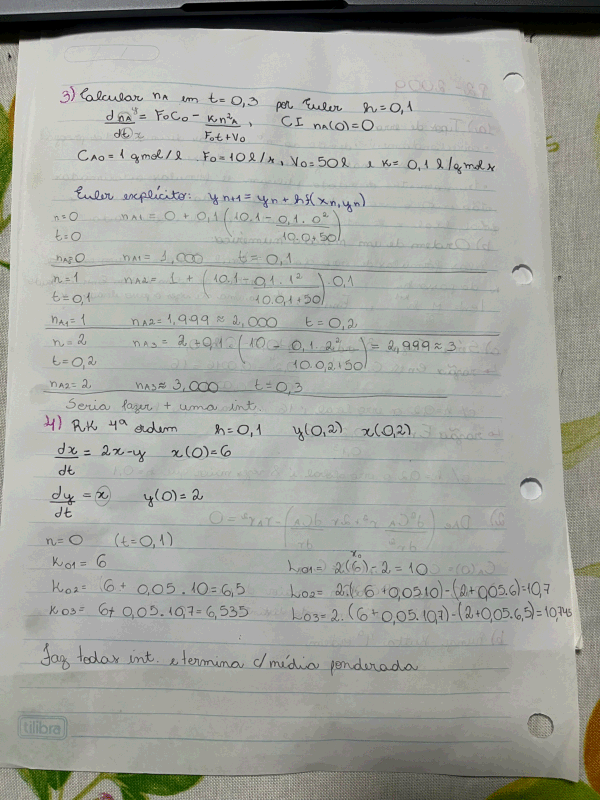 3) Calcular nA em t=0,3 por Euler h=0,1
dnA^y/dt x = F0C0 - Kn²A/F0t+V0, CI nA(0)=0
CA0=1 gmol/l F0=10l/s, V0=50l e K=0,1 l/gmol s
Euler explícito: yn+1 = yn + hf(xn,yn)
n=0 nA1 = 0 + 0,1(10.1 - 0,1.0²/10.0+50)
t=0
nA=0 nA1=1,000 t=0,1
n=1 nA2= 1 + (10.1 - 0,1.1²/10.0,1+50) 0,1
t=0,1
nA1=1 nA2=1,999 ≈ 2,000 t=0,2
n=2 nA3 = 2+0,1.(10 - 0,1.2²/10.0,2+50) = 2,999 ≈ 3
t=0,2
nA2=2 nA3≈3,000 t=0,3
Seria fazer + uma int.
4) RK 4ª ordem h=0,1 y(0,2) x(0,2)
dx/dt = 2x-y x(0)=6
dy/dt = x y(0)=2
n=0 (t=0,1)
K01= 6 L01= 2.(6)-2 = 10 x0
K02= (6 + 0,05.10=6,5 L02= 2.(6+0,0510)-(2+0,05.6)=10,7
K03= 6+ 0,05.10,7=6,535 L03=2.(6+0,05.10,7)-(2+0,05.6,5)=10,745
Faz todas int. e termina c/média ponderada
tilibra